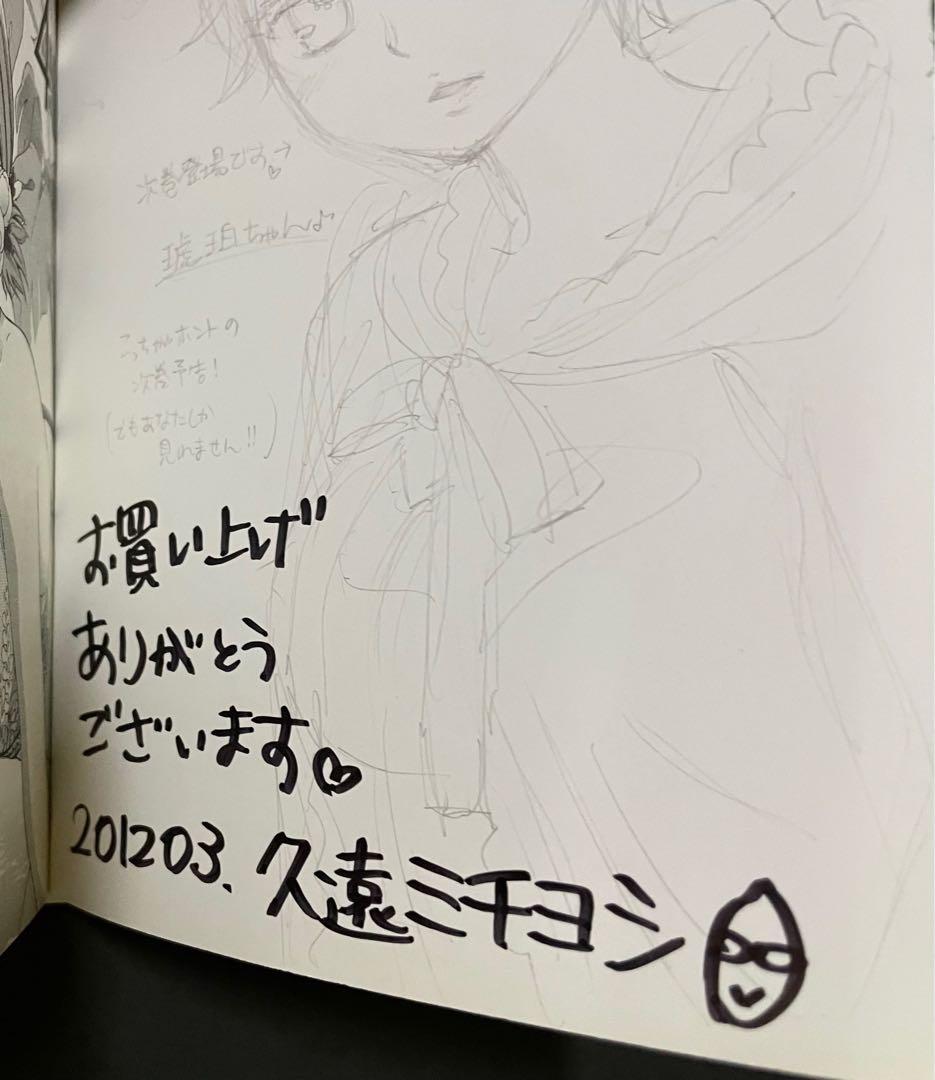 次巻登場です→♡
琥珀ちゃん♪
こっちがホントの
次巻予告!
(でもあなたしか
見れません!!)
お買い上げ
ありがとう
ございます♡
201203. 久遠ミチヨシ